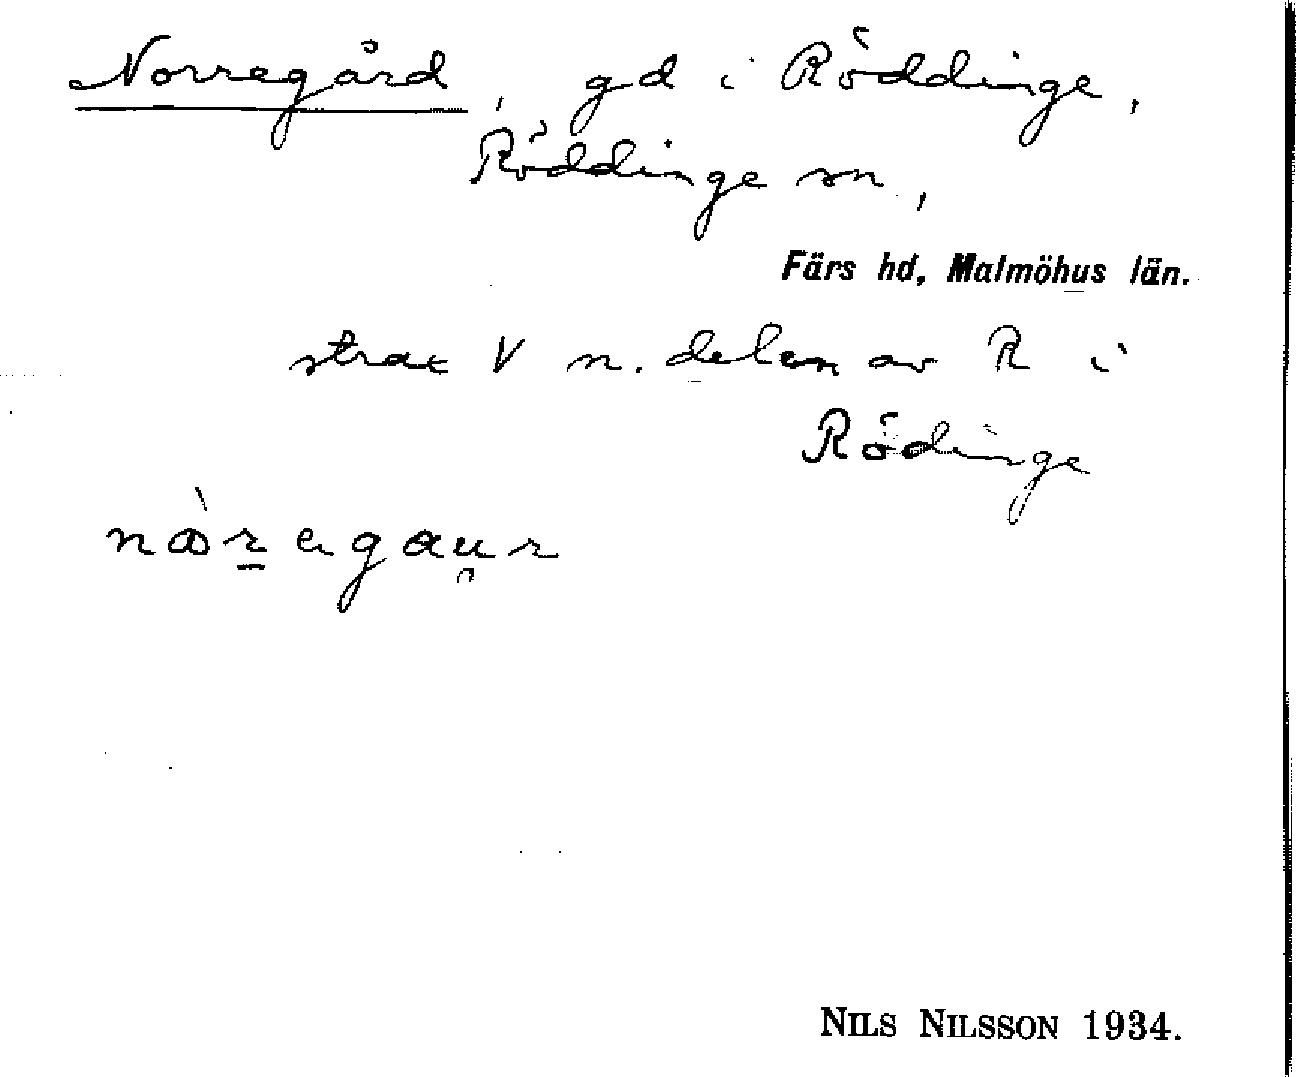 Norregård, gd i Röddinge,
Röddinge sn,
Färs hd, Malmöhus län.
strax V n. delen av R i
Rödinge
Nils Nilsson 1934.